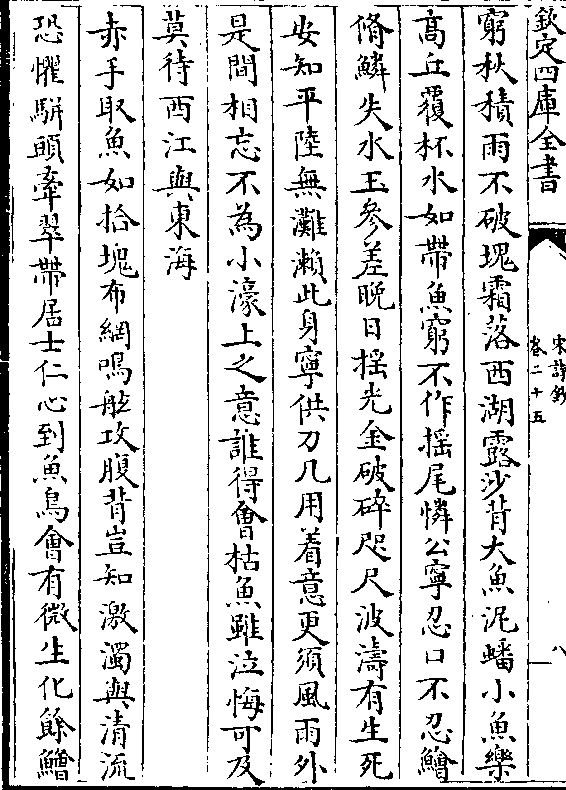 欽定四庫全書
宋詩鈔
卷二十五
八
窮秋積雨不破塊霜落西湖露沙背大魚泥蟠小魚樂
高丘覆杯水如帶魚窮不作摇尾憐公寧忍口不忍鱠
脩鱗失水玉參差晚日摇光金破碎咫尺波濤有生死
安知平陸無灘瀨此身寧供刀几用着意更須風雨外
是間相忘不為小濠上之意誰得㑹枯魚雖泣悔可及
莫待西江與東海
赤手取魚如拾塊布網鳴舷攻腹背豈知激濁與清流
恐懼駢頭牽翠帶居士仁心到魚鳥㑹有微生化餘鱠